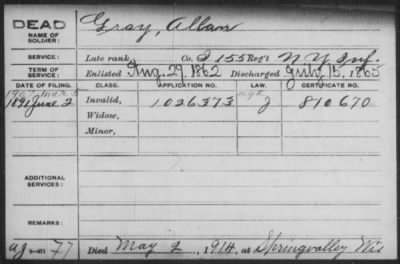 DEAD
NAME OF SOLDIER:
Gray, Allan
SERVICE:
Late rank Co. I 155 Reg't N.Y. Inf.
TERM OF SERVICE:
Enlisted Aug. 29, 1862 Discharged July 15, 1865
DATE OF FILING. CLASS. APPLICATION NO. LAW. CERTIFICATE NO.
1907 Mar 5 age
1891 June 2 Invalid, 1026373 J 810670
Widow,
Minor,
ADDITIONAL SERVICES:
REMARKS:
77 Died May 2, 1914, at Springvalley Wis